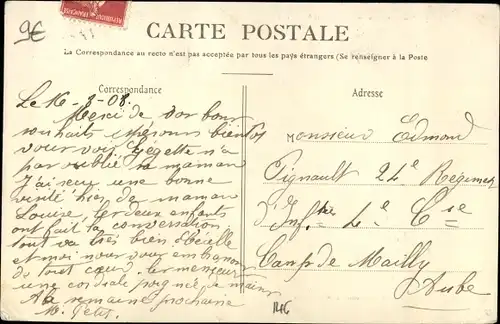 9€
CARTE POSTALE
La Correspondance au recto n'est pas acceptée par tous les pays étrangers (Se renseigner à la Poste
Correspondance
Adresse
Le 16-3-08.
Merci de vos bons
souhaits espérons bientôt
vous voir Gégette n'a
pas oublié sa maman
J'ai reçu une bonne
visite hier de maman
Louise, les deux enfants
ont fait la conversation
tout va très bien
et moi nous vous embrassons
de tout cœur
une cordiale poignée de main
A la semaine prochaine
Monsieur Edmond
Pignault 24e Regiment
d'Infrie 4e Cie
Camp de Mailly
Aube
146